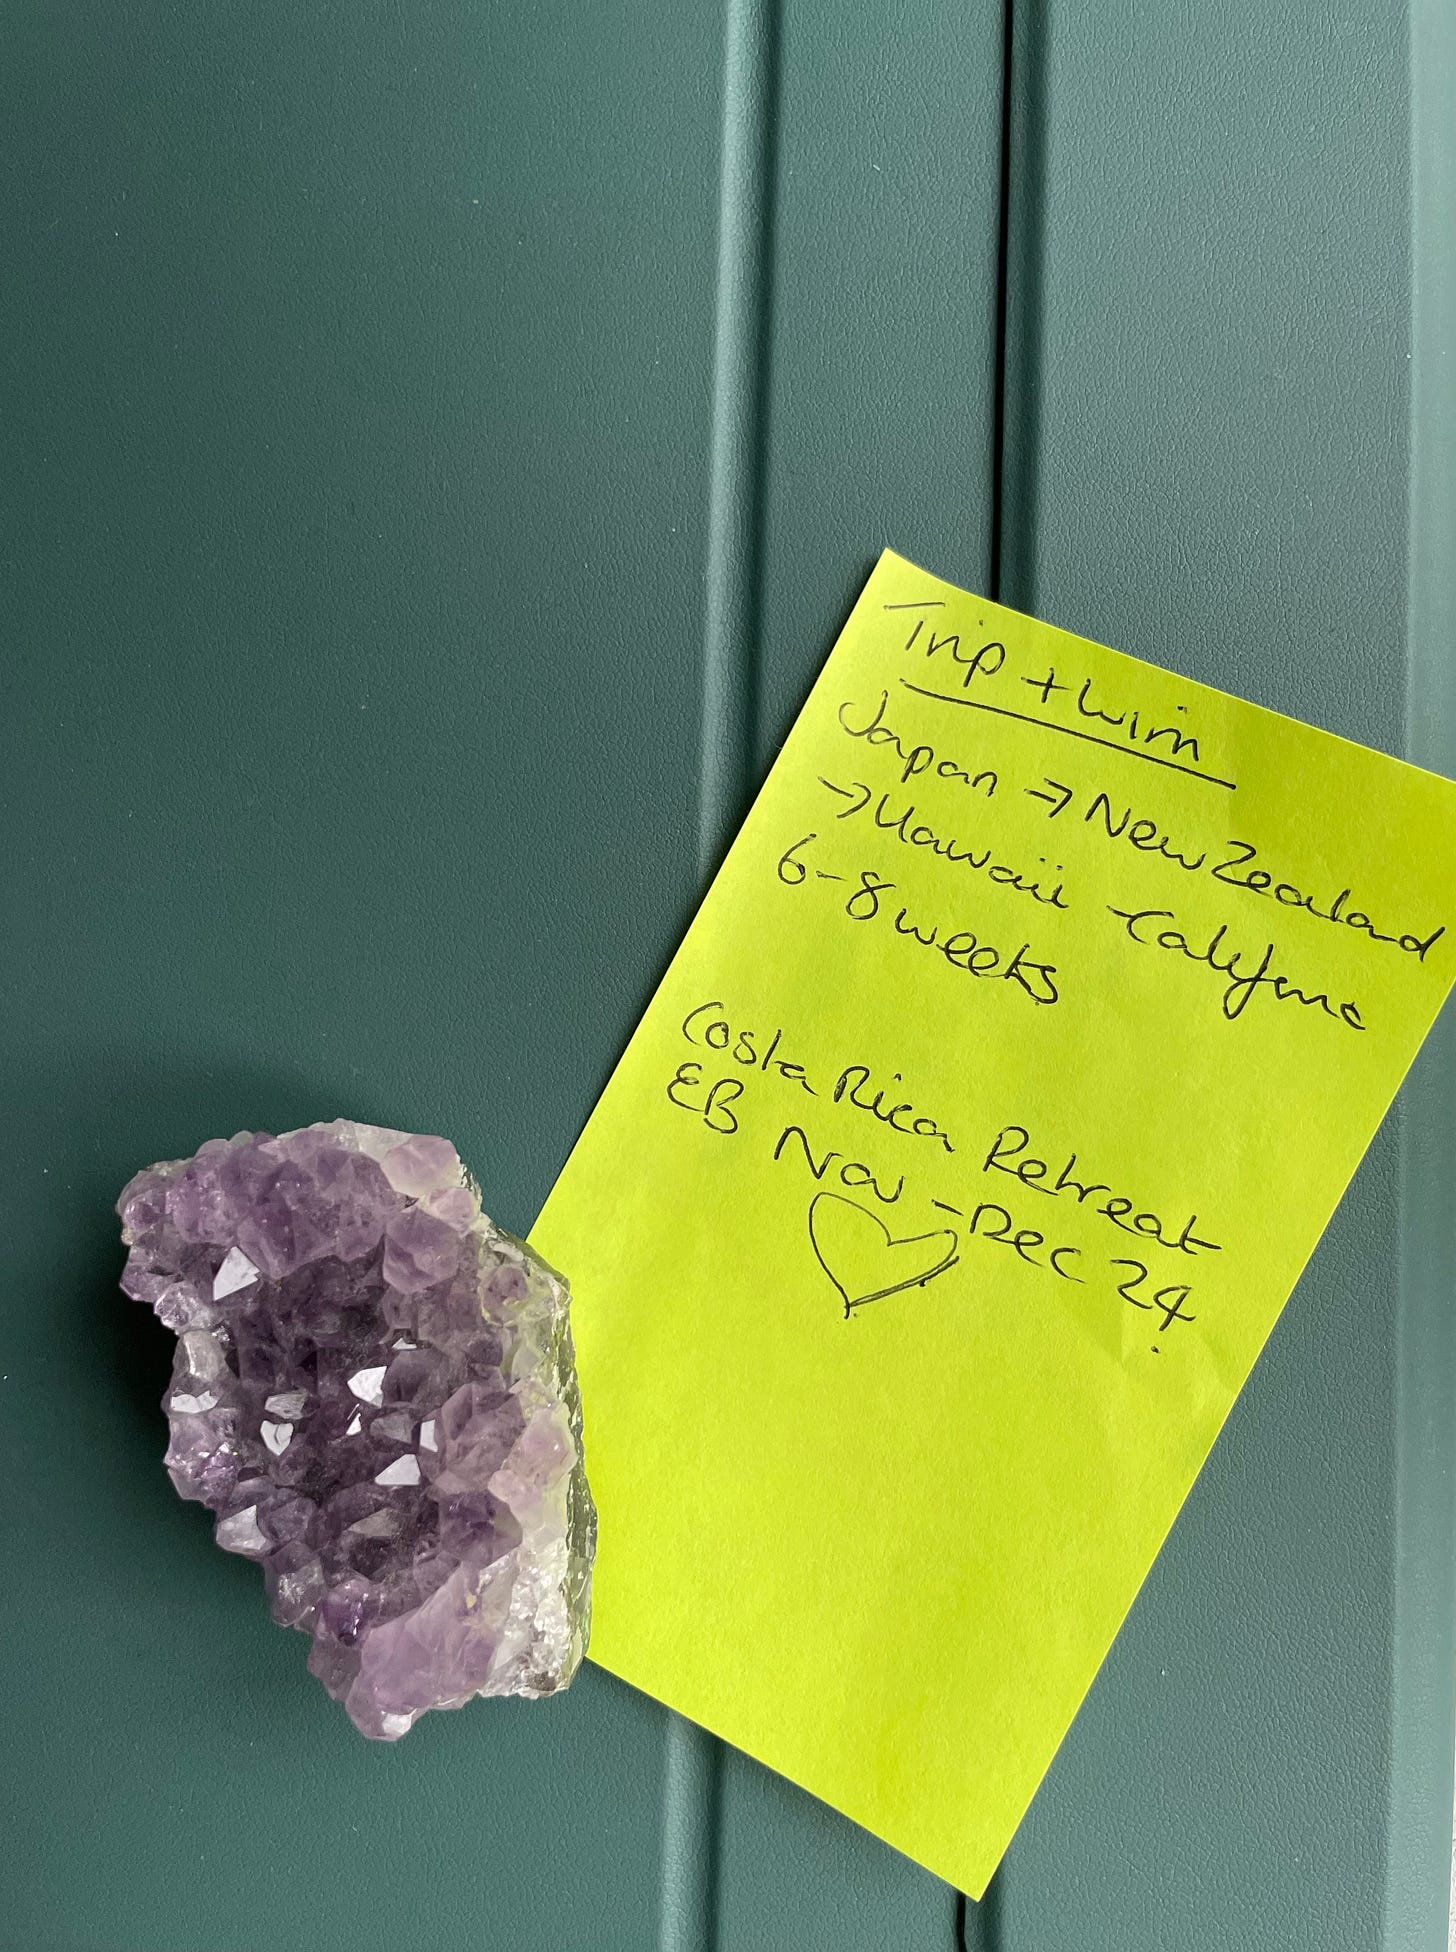 Trip + Wim
Japan → New Zealand
→ Hawaii - California
6-8 weeks
Costa Rica Retreat
EB Nov - Dec 24